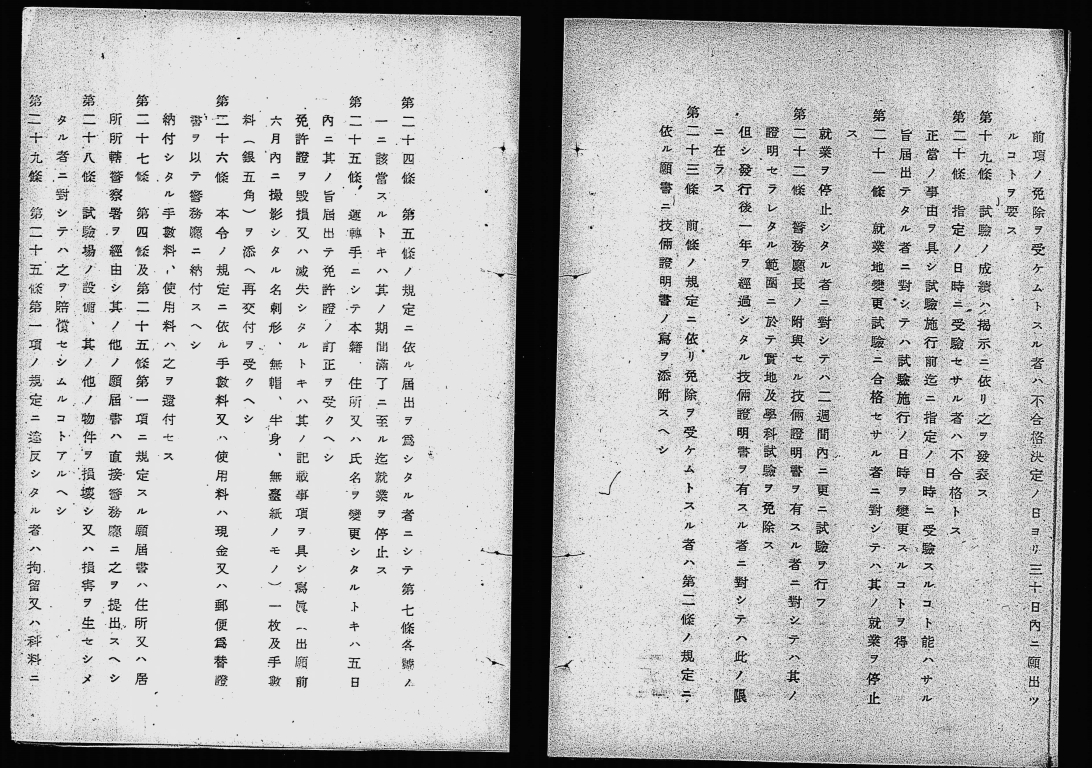 前項ノ免除ヲ受ケムトスル者ハ不合格決定ノ日ヨリ三十日內ニ願出ツ
ルコトヲ要ス
第十九條　試驗ノ成績ハ揭示ニ依リ之ヲ發表ス
第二十條　指定ノ日時ニ受驗セサル者ハ不合格トス
正當ノ事由ヲ具シ試驗施行前迄ニ指定ノ日時ニ受驗スルコト能ハサル
旨屆出テタル者ニ對シテハ試驗施行ノ日時ヲ變更スルコトヲ得
第二十一條　就業地變更試驗ニ合格セサル者ニ對シテハ其ノ就業ヲ停止
ス
就業ヲ停止シタル者ニ對シテハ二週間內ニ更ニ試驗ヲ行フ
第二十二條　警務廳長ノ附與セル技倆證明書ヲ有スル者ニ對シテハ其ノ
證明セラレタル範圍ニ於テ實地及學科試驗ヲ免除ス
但シ發行後一年ヲ經過シタル技倆證明書ヲ有スル者ニ對シテハ此ノ限
ニ在ラス
第二十三條　前條ノ規定ニ依リ免除ヲ受ケムトスル者ハ第二條ノ規定ニ
依ル願書ニ技倆證明書ノ寫ヲ添附スヘシ
第二十四條　第五條ノ規定ニ依ル屆出ヲ爲シタル者ニシテ第七條各號ノ
一ニ該當スルトキハ其ノ期間滿了ニ至ル迄就業ヲ停止ス
第二十五條　運轉手ニシテ本籍、住所又ハ氏名ヲ變更シタルトキハ五日
內ニ其ノ旨屆出テ免許證ノ訂正ヲ受クヘシ
免許證ヲ毀損又ハ滅失シタルトキハ其ノ記載事項ヲ具シ寫眞（出願前
六月內ニ撮影シタル名刺形、無帽、半身、無臺紙ノモノ）一枚及手數
料（銀五角）ヲ添ヘ再交付ヲ受クヘシ
第二十六條　本令ノ規定ニ依ル手數料又ハ使用料ハ現金又ハ郵便爲替證
書ヲ以テ警務廳ニ納付スヘシ
納付シタル手數料、使用料ハ之ヲ還付セス
第二十七條　第四條及第二十五條第一項ニ規定スル願屆書ハ住所又ハ居
所所轄警察署ヲ經由シ其ノ他ノ願屆書ハ直接警務廳ニ之ヲ提出スヘシ
第二十八條　試驗場ノ設備、其ノ他ノ物件ヲ損壞シ又ハ損害ヲ生セシメ
タル者ニ對シテハ之ヲ賠償セシムルコトアルヘシ
第二十九條　第二十五條第一項ノ規定ニ違反シタル者ハ拘留又ハ科料ニ